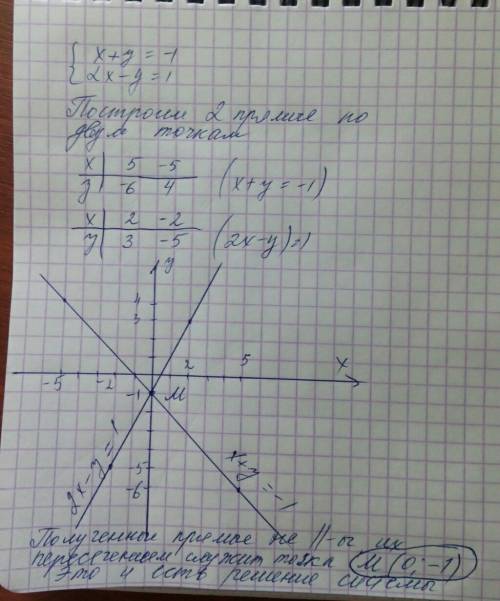 { x+y = -1
2x-y = 1
Построим 2 прямые по
двум точкам
x | 5 -5
y | -6 4 (x+y = -1)
x | 2 -2
y | 3 -5 (2x-y)=1
y
4
3
-5 -2 2 5 x
-1 M
-5
-6
2x-y = 1
x+y = -1
Полученные прямые не ||-ы их
пересечением служит точка M (0; -1)
Это и есть решение системы